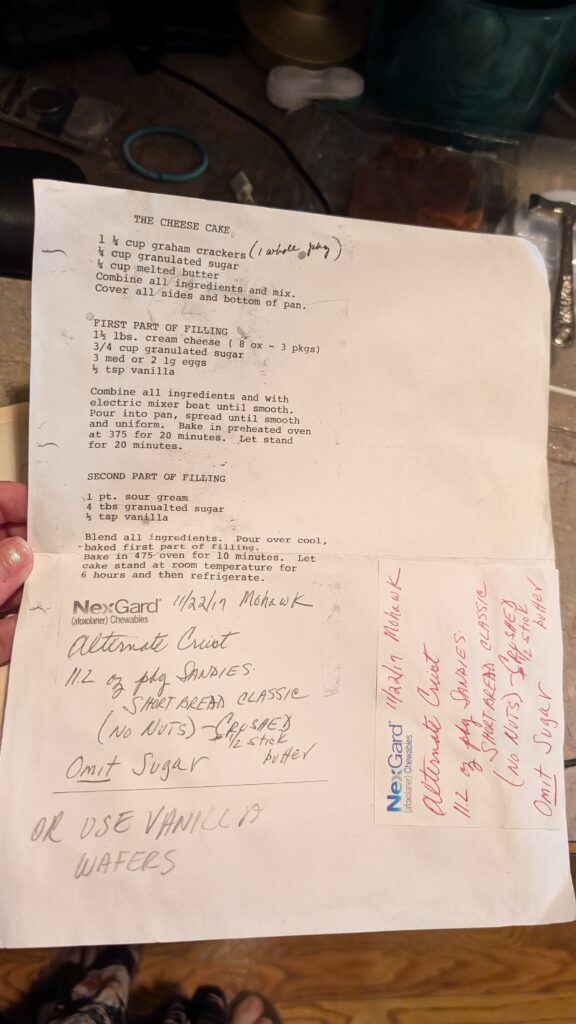 THE CHEESE CAKE
1 ¼ cup graham crackers (1 whole pkg)
¼ cup granulated sugar
¼ cup melted butter
Combine all ingredients and mix.
Cover all sides and bottom of pan.
FIRST PART OF FILLING
1½ lbs. cream cheese ( 8 ox - 3 pkgs)
3/4 cup granulated sugar
3 med or 2 lg eggs
½ tsp vanilla
Combine all ingredients and with
electric mixer beat until smooth.
Pour into pan, spread until smooth
and uniform. Bake in preheated oven
at 375 for 20 minutes. Let stand
for 20 minutes.
SECOND PART OF FILLING
1 pt. sour gream
4 tbs granualted sugar
½ tsp vanilla
Blend all ingredients. Pour over cool,
baked first part of filling.
Bake in 475 oven for 10 minutes. Let
cake stand at room temperature for
6 hours and then refrigerate.
NexGard® 11/22/17 Mohawk
(afoxolaner) Chewables
Alternate Crust
11.2 oz pkg SANDIES
SHORTBREAD CLASSIC
(NO NUTS) - CRUSHED
1/2 stick
butter
Omit Sugar
OR USE VANILLA
WAFERS
NexGard® 11/22/17 Mohawk
(afoxolaner) Chewables
Alternate Crust
11.2 oz pkg SANDIES
SHORTBREAD CLASSIC
(NO NUTS) - CRUSHED
1/2 stick
butter
Omit Sugar